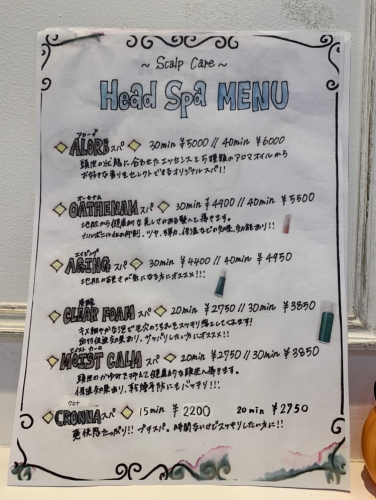 ~ Scalp Care ~
Head Spa MENU
アローブ
ALORB スパ 30min ¥5000 // 40min ¥6000
頭皮の状態に合わせたエッセンスと5種類のアロマオイルから
お好きな香りをセレクトできるオリジナルスパ!!
オーセナム
OATHENAM スパ 30min ¥4400 // 40min ¥5500
地肌から健康的な美しさのある髪へと導きます。
ハリ、ツヤ、弾力、保湿などの効果
エイジング
AGING スパ 30min ¥4400 // 40min ¥4950
地肌の硬さが気になる方にオススメ!!!
CLEAR FOAM スパ 20min ¥2750 // 30min ¥3850
キメ細やかな泡で毛穴の汚れをスッキリ落としてくれます!
サッパリしたい方にオススメ!!
MOIST CALM スパ 20min ¥2750 // 30min ¥3850
頭皮のかゆみを抑えて健康的な頭皮へ導きます。
保湿効果あり、乾燥予防にもバッチリ!!!
クロナ
CRONNA スパ 15min ¥2200 20min ¥2750
爽快感たっぷり!! プチスパ。時間ないけどスッキリしたい方に!!